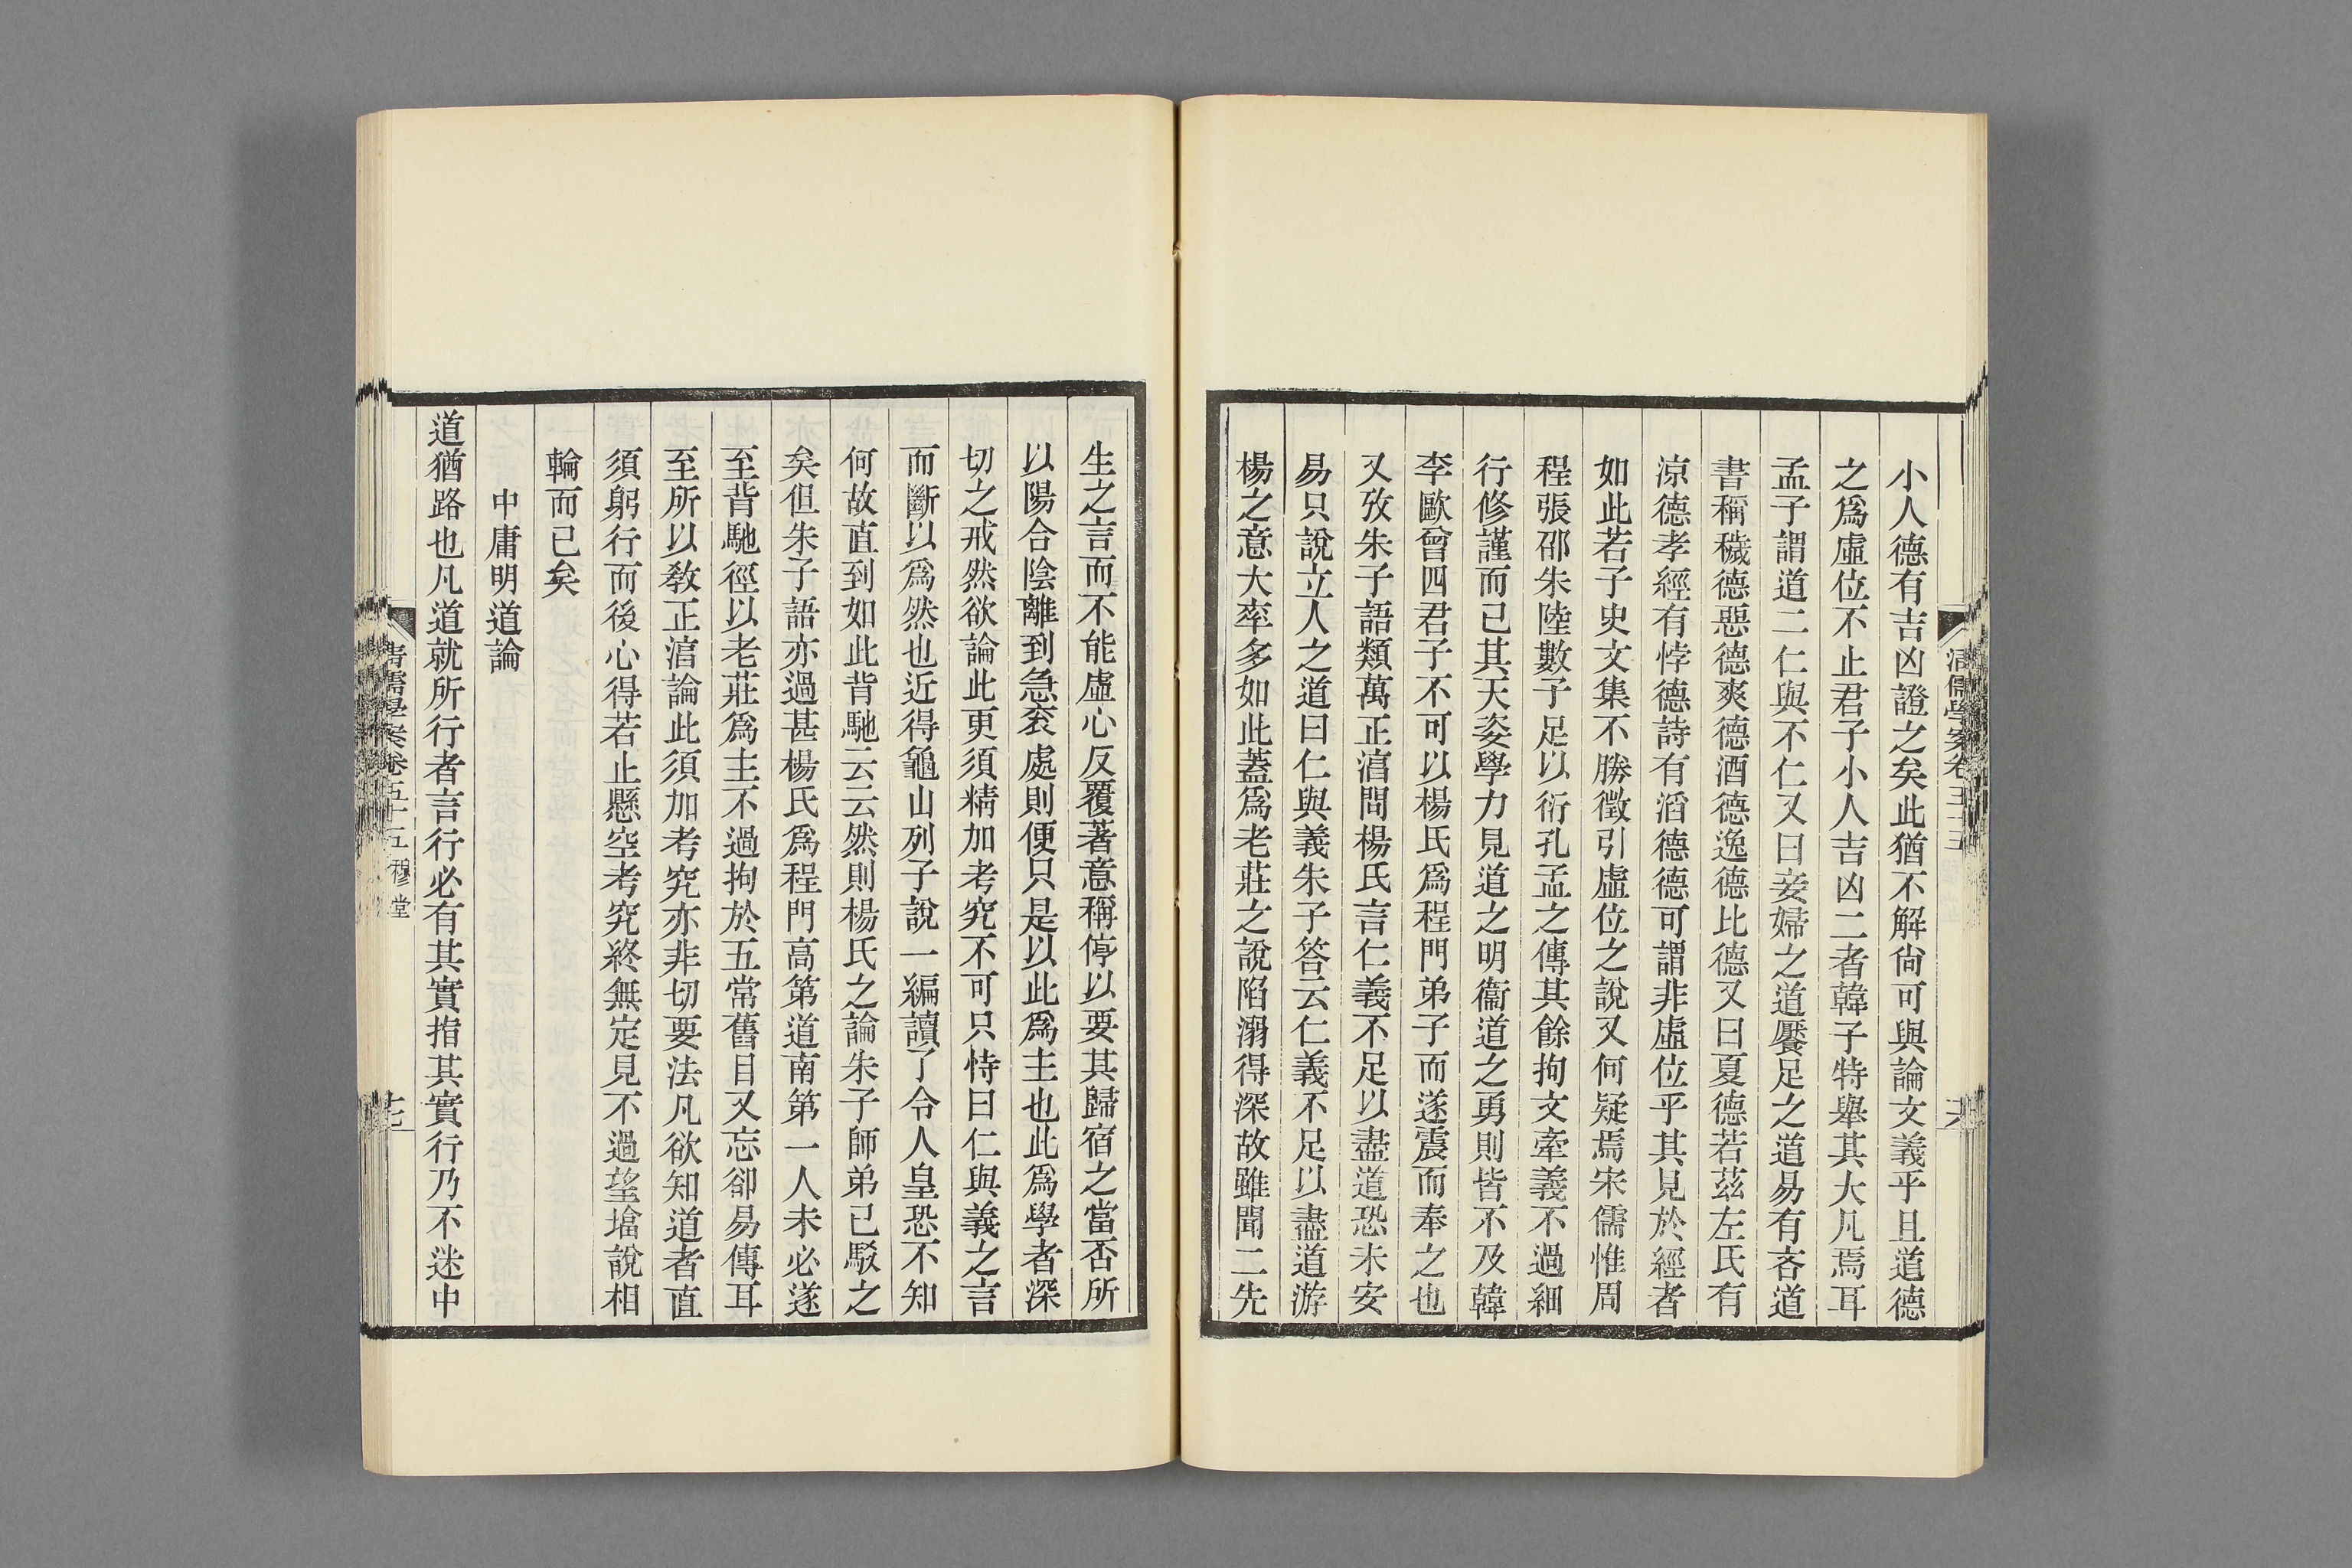 清儒學案卷五十五
小人德有吉凶證之矣此猶不解尙可與論文義乎且道德
之爲虛位不止君子小人吉凶二者韓子特舉其大凡焉耳
孟子謂道二仁與不仁又曰妾婦之道饜足之道易有吝道
書稱穢德惡德爽德酒德逸德比德又曰夏德若茲左氏有
涼德孝經有悖德詩有滔德德可謂非虛位乎其見於經者
如此若子史文集不勝徵引虛位之說又何疑焉宋儒惟周
程張邵朱陸數子足以衍孔孟之傳其餘拘文牽義不過細
行修謹而已其天姿學力見道之明衞道之勇則皆不及韓
李歐曾四君子不可以楊氏爲程門弟子而遂震而奉之也
又攷朱子語類萬正淳問楊氏言仁義不足以盡道恐未安
易只說立人之道曰仁與義朱子答云仁義不足以盡道游
楊之意大率多如此蓋爲老莊之說陷溺得深故雖聞二先
生之言而不能虛心反覆著意稱停以要其歸宿之當否所
以陽合陰離到急衮處則便只是以此爲主也此爲學者深
切之戒然欲論此更須精加考究不可只恃曰仁與義之言
而斷以爲然也近得龜山列子說一編讀了令人皇恐不知
何故直到如此背馳云云然則楊氏之論朱子師弟已駁之
矣但朱子語亦過甚楊氏爲程門高第道南第一人未必遂
至背馳徑以老莊爲主不過拘於五常舊目又忘卻易傳耳
至所以敎正淳論此須加考究亦非切要法凡欲知道者直
須躬行而後心得若止懸空考究終無定見不過望墖說相
輪而已矣
中庸明道論
道猶路也凡道就所行者言行必有其實指其實行乃不迷中
清儒學案卷五十五 穆堂